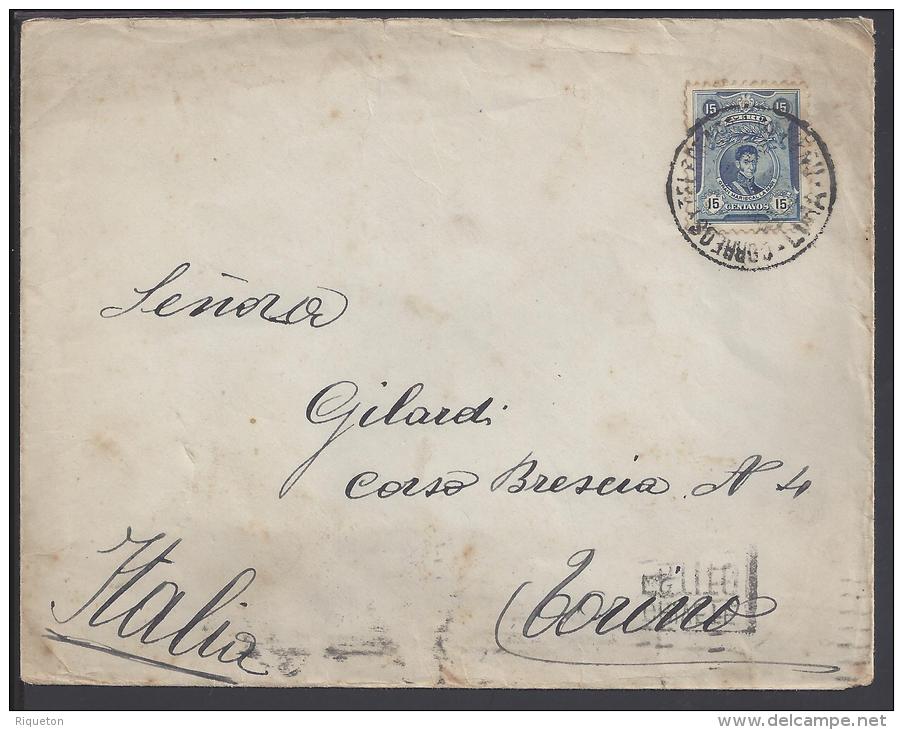 15 15
15 CENTAVOS 15
LIMA - CORREOS
Señora
Gilardi
Corso Brescia N 4
Italia
Torino
Riqueton
www.delcampe.net